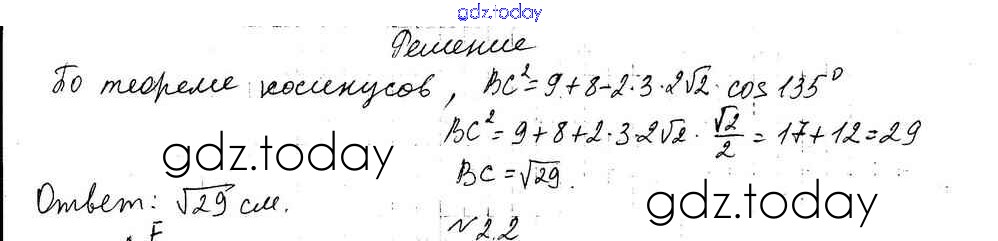 gdz.today
Решение
По теореме косинусов, BC²=9+8-2·3·2√2·cos135⁰
BC²=9+8+2·3·2√2·√2/2=17+12=29
gdz.today
BC=√29.
gdz.today
Ответ: √29 см.
N2.2
F